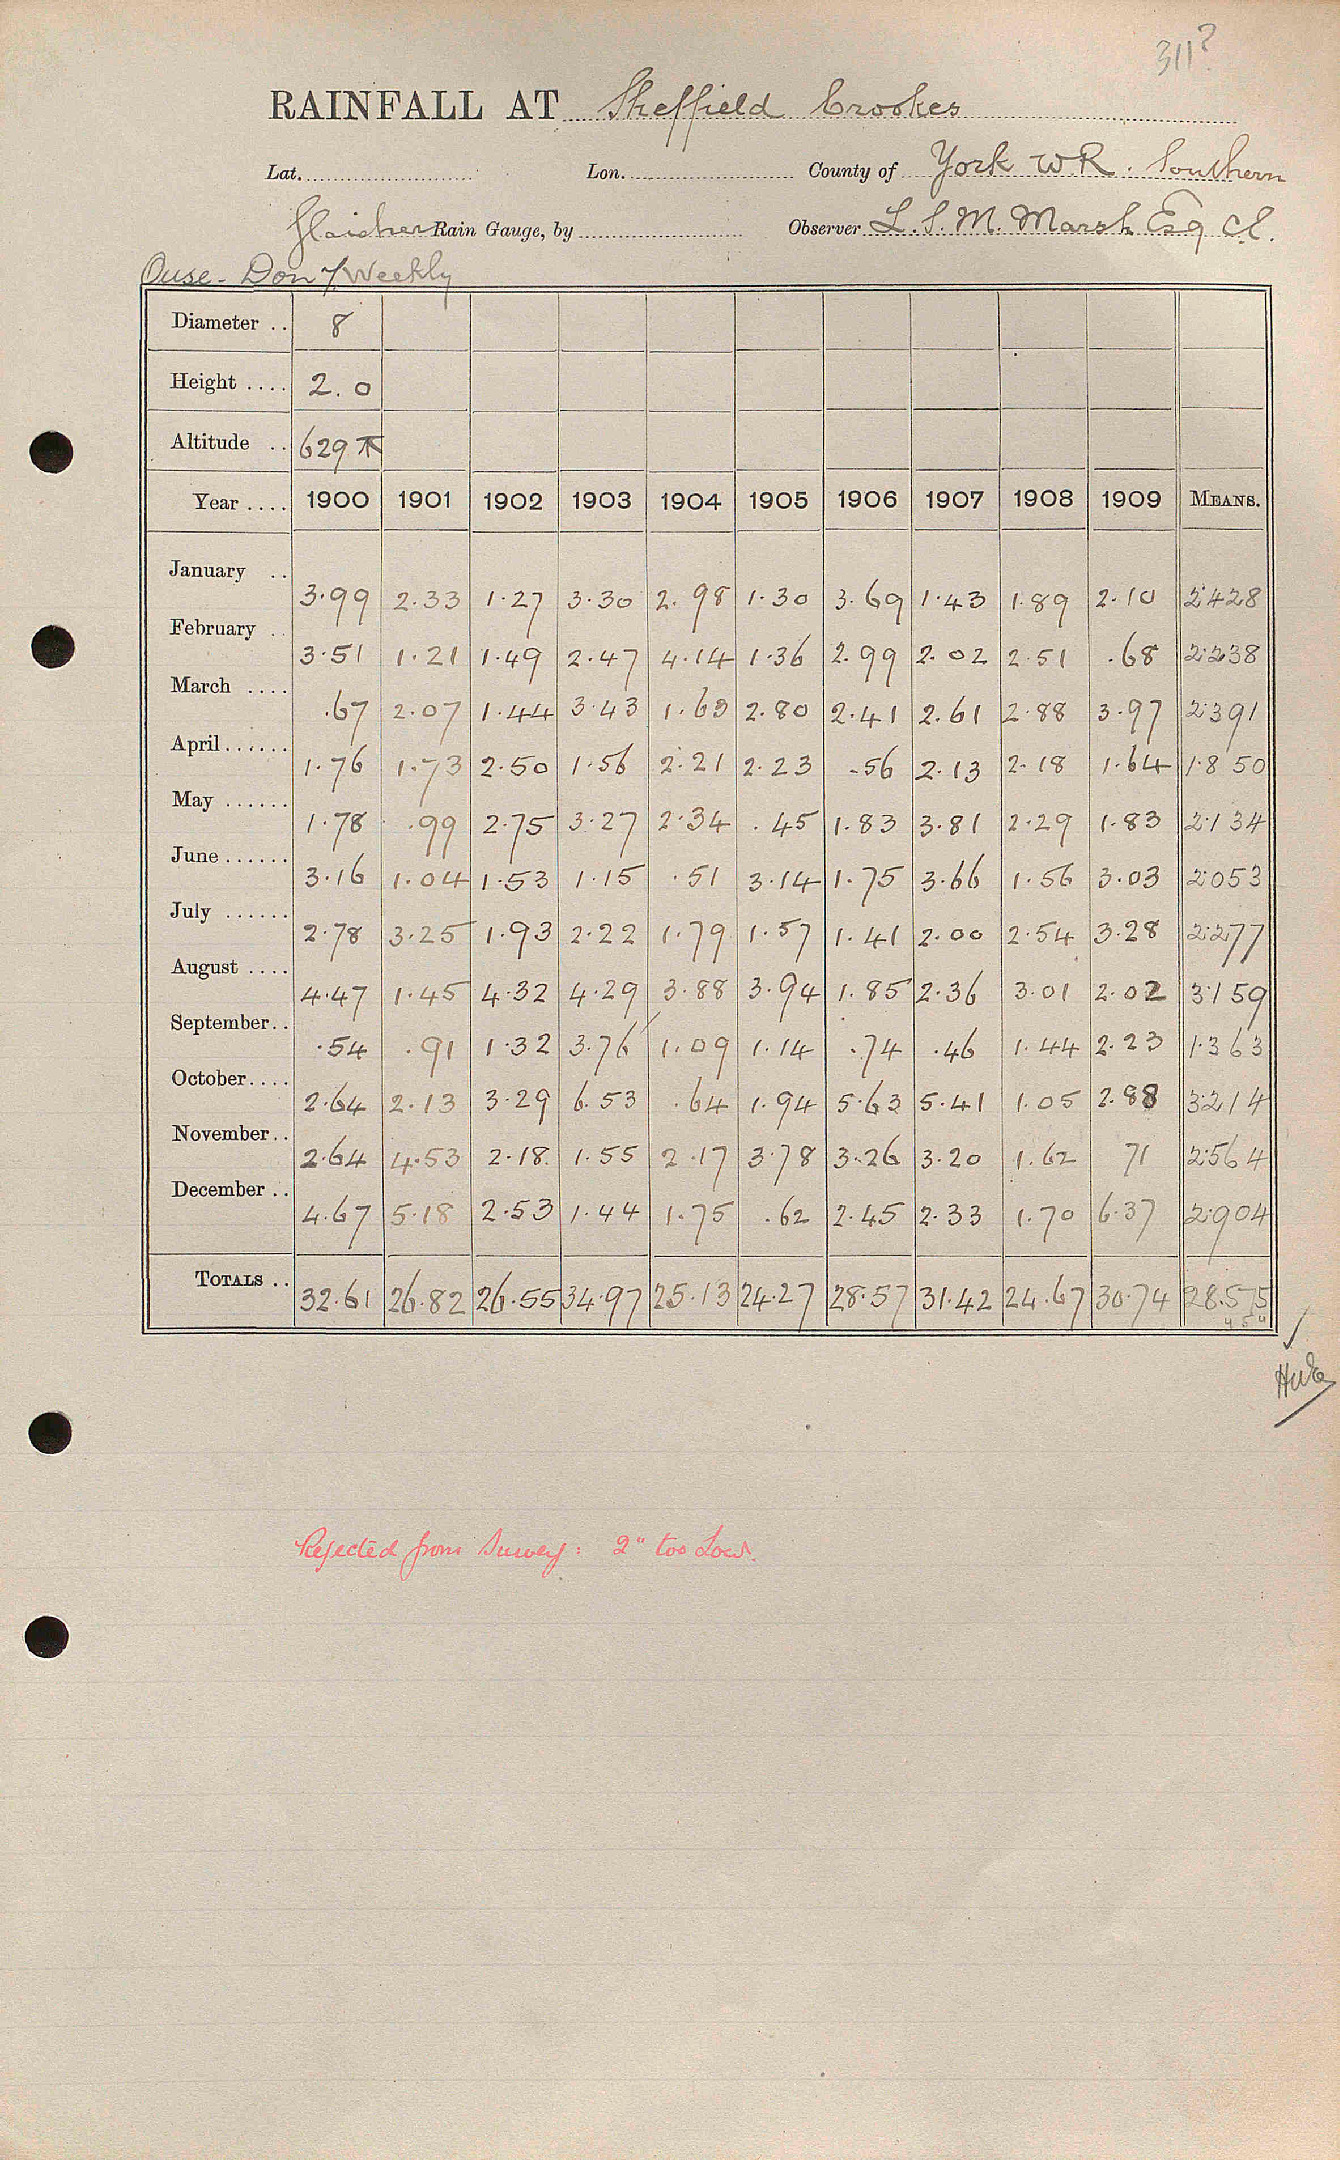 311?
RAINFALL AT Sheffield Crookes
Lat. Lon. County of York W.R. Southern
Glaisher Rain Gauge, by Observer L. S. M. Marsh Esq C.E.
Ouse - Don / Weekly
Diameter .. 8
Height .... 2.0
Altitude .. 629
Year .... 1900 1901 1902 1903 1904 1905 1906 1907 1908 1909 MEANS.
January .. 3.99 2.33 1.27 3.30 2.98 1.30 3.69 1.43 1.89 2.10 2.428
February .. 3.51 1.21 1.49 2.47 4.14 1.36 2.99 2.02 2.51 .68 2.238
March .... .67 2.07 1.44 3.43 1.63 2.80 2.41 2.61 2.88 3.97 2.391
April ...... 1.76 1.73 2.50 1.56 2.21 2.23 .56 2.13 2.18 1.64 1.850
May ...... 1.78 .99 2.75 3.27 2.34 .45 1.83 3.81 2.29 1.83 2.134
June ...... 3.16 1.04 1.53 1.15 .51 3.14 1.75 3.66 1.56 3.03 2.053
July ...... 2.78 3.25 1.93 2.22 1.79 1.57 1.41 2.00 2.54 3.28 2.277
August .... 4.47 1.45 4.32 4.29 3.88 3.94 1.85 2.36 3.01 2.02 3.159
September .. .54 .91 1.32 3.76 1.09 1.14 .74 .46 1.44 2.23 1.363
October .... 2.64 2.13 3.29 6.53 .64 1.94 5.63 5.41 1.05 2.88 3.214
November .. 2.64 4.53 2.18 1.55 2.17 3.78 3.26 3.20 1.62 71 2.564
December .. 4.67 5.18 2.53 1.44 1.75 .62 2.45 2.33 1.70 6.37 2.904
TOTALS .. 32.61 26.82 26.55 34.97 25.13 24.27 28.57 31.42 24.67 30.74 28.575
Rejected from Survey: 2" too Low.